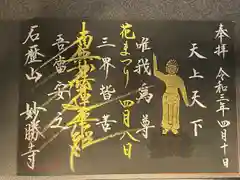 奉拝 令和三年四月十日
天上天下
唯我為尊
花まつり 四月八日
三界皆苦
南無
吾當安之
妙勝寺